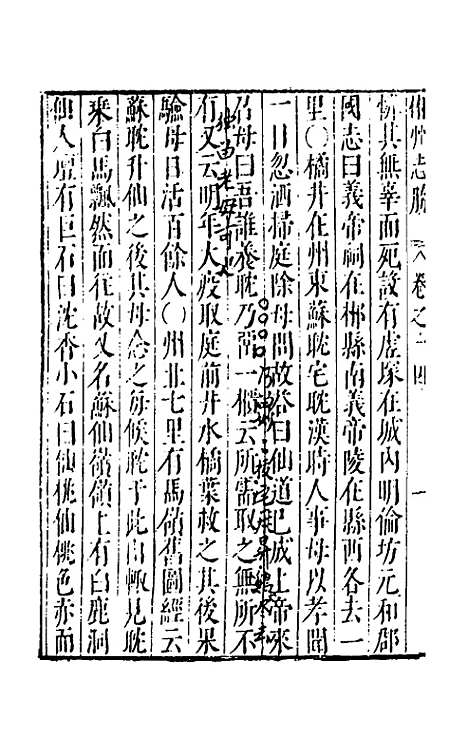 郴州志勝　卷之二四　一
憐其無辜而死故有虛塚在城內明倫坊元和郡
國志曰義帝祠在郴縣南義帝陵在縣西各去一
里〇橘井在州東蘇耽宅耽漢時人事母以孝聞
一日忽洒掃庭除母問故答曰仙道已成上帝來
召母曰吾誰養耽乃留一櫃云所需取之無所不
有又云明年大疫取庭前井水橘葉救之其後果
驗母日活百餘人〇州北七里有馬嶺舊圖經云
蘇耽升仙之後其母念之每候耽于此自輒見耽
乘白馬飄然而往故又名蘇仙嶺嶺上有白鹿洞
仙人壇有巨石曰沈香小石曰仙桃仙桃色赤而